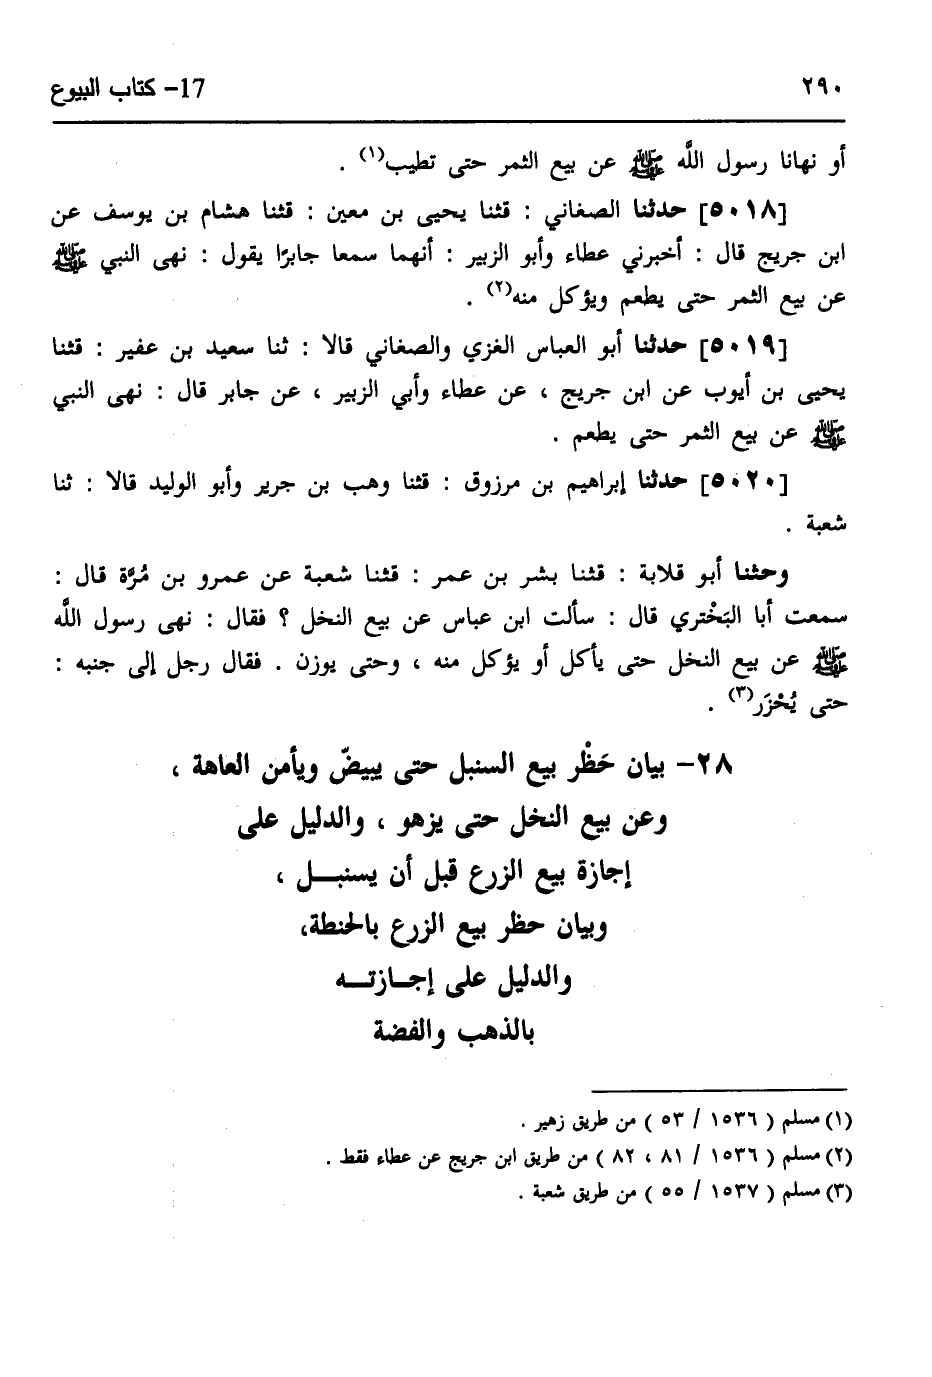 ٢٩٠
17- كتاب البيوع
أو نهانا رسول اللَّه ﷺ عن بيع الثمر حتى تطيب(١) .
[٥٠١٨] حدثنا الصغاني : قثنا يحيى بن معين : قثنا هشام بن يوسف عن
ابن جريج قال : أخبرني عطاء وأبو الزبير : أنهما سمعا جابرًا يقول : نهى النبي ﷺ
عن بيع الثمر حتى يطعم ويؤكل منه(٢) .
[٥٠١٩] حدثنا أبو العباس الغزي والصغاني قالا : ثنا سعيد بن عفير : قثنا
يحيى بن أيوب عن ابن جريج ، عن عطاء وأبي الزبير ، عن جابر قال : نهى النبي
ﷺ عن بيع الثمر حتى يطعم .
[٥٠٢٠] حدثنا إبراهيم بن مرزوق : قثنا وهب بن جرير وأبو الوليد قالا : ثنا
شعبة .
وحثنا أبو قلابة : قثنا بشر بن عمر : قثنا شعبة عن عمرو بن مُرَّة قال :
سمعت أبا البَخْتري قال : سألت ابن عباس عن بيع النخل ؟ فقال : نهى رسول اللَّه
ﷺ عن بيع النخل حتى يأكل أو يؤكل منه ، وحتى يوزن . فقال رجل إلى جنبه :
حتى يُحْزَر(٣) .
٢٨- بيان حَظْر بيع السنبل حتى يبيضّ ويأمن العاهة ،
وعن بيع النخل حتى يزهو ، والدليل على
إجازة بيع الزرع قبل أن يسنبـل ،
وبيان حظر بيع الزرع بالحنطة،
والدليل على إجـازتـه
بالذهب والفضة
(١) مسلم ( ١٥٣٦ / ٥٣ ) من طريق زهير .
(٢) مسلم ( ١٥٣٦ / ٨١ ، ٨٢ ) من طريق ابن جريج عن عطاء فقط .
(٣) مسلم ( ١٥٣٧ / ٥٥ ) من طريق شعبة .